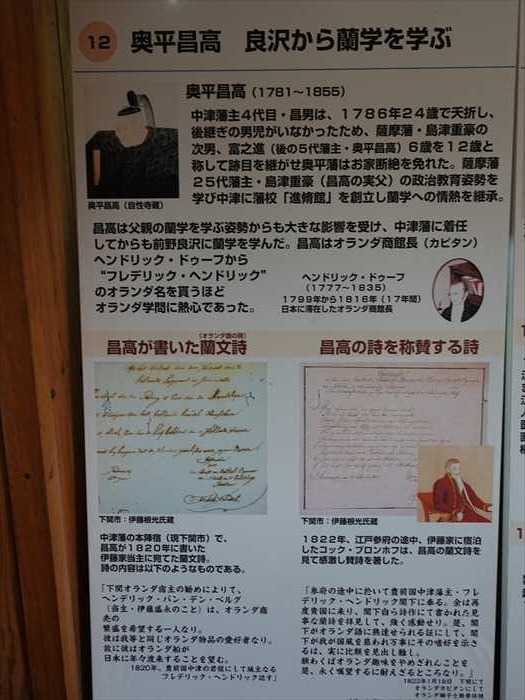 12 奥平昌高 良沢から蘭学を学ぶ
奥平昌高（1781～1855）
中津藩主4代目・昌男は、1786年24歳で夭折し、
後継ぎの男児がいなかったため、薩摩藩・島津重豪の
次男、富之進（後の5代藩主・奥平昌高）6歳を12歳と
称して跡目を継がせ奥平藩はお家断絶を免れた。薩摩藩
25代藩主・島津重豪（昌高の実父）の政治教育姿勢を
学び中津に藩校「進脩館」を創立し蘭学への情熱を継承。
奥平昌高（自性寺蔵）
昌高は父親の蘭学を学ぶ姿勢からも大きな影響を受け、中津藩に着任
してからも前野良沢に蘭学を学んだ。昌高はオランダ商館長（カピタン）
ヘンドリック・ドゥーフから
“フレデリック・ヘンドリック”
のオランダ名を貰うほど
オランダ学問に熱心であった。
ヘンドリック・ドゥーフ
（1777～1835）
1799年から1816年（17年間）
日本に滞在したオランダ商館長
（オランダ語の詩）
昌高が書いた蘭文詩
下関市：伊藤根光氏蔵
中津藩の本陣宿（現下関市）で、
昌高が1820年に書いた
伊藤家当主に宛てた蘭文。
詩の内容は以下のようなものである。
「下関オランダ宿主の勧めによりて、
ヘンドリック・バン・デン・ベルグ
（当主・伊藤盛永のこと）は、オランダ商
売の
繁盛を希望する一人なり。
彼は我等と同じオランダ物品の愛好者なり。
故に彼はオランダ船が
日本に年々渡来することを望む。
1820年、豊前国中津の君侯にして城主なる
フレデリック・ヘンドリック述す」
昌高の詩を称賛する詩
下関市：伊藤根光氏蔵
1822年、江戸参府の途中、伊藤家に宿泊
したコック・ブロンホフは、昌高の蘭文詩を
見て感激し賛詩を著した。
「参府の途中に於いて豊前国中津藩主・フレ
デリック・ヘンドリック閣下に奉る。余は再
度貴国に来り、閣下自ら詩作にて書かれた見
事な蘭詩を拝見して、強く感動せり。是、閣
下がオランダ語に熟達せられる証にして、閣
下が我が国風を慕われ万事にその嗜好を示さ
るは、実に比類を見出し難し。
願わくばオランダ趣味をやめざれんことを
是、永く嘱望するに耐えざるところなり。」
1822年1月18日 下関にて